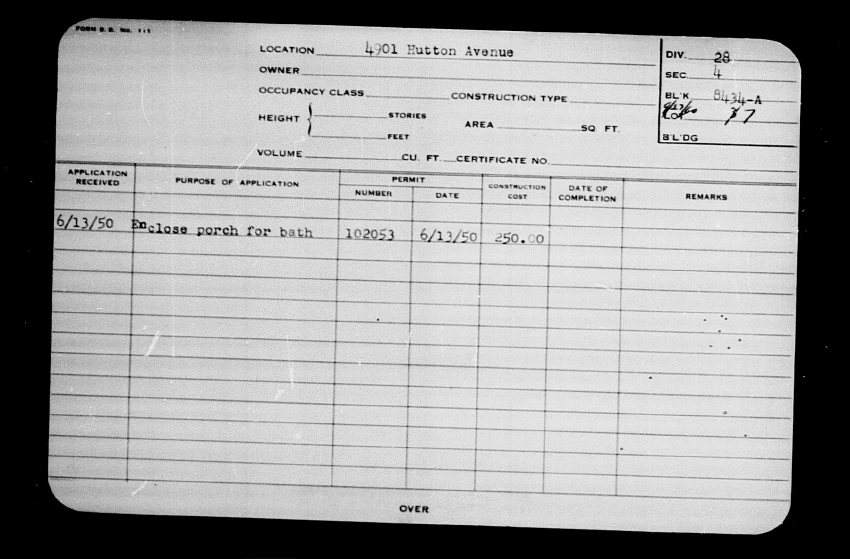 FORM B. B. No. 111
LOCATION 4901 Hutton Avenue
OWNER
OCCUPANCY CLASS CONSTRUCTION TYPE
HEIGHT STORIES
FEET
AREA SQ FT.
VOLUME CU. FT. CERTIFICATE NO.
DIV. 28
SEC. 4
BL'K 8434-A
LOT 37
B'L'DG
APPLICATION RECEIVED PURPOSE OF APPLICATION PERMIT NUMBER DATE CONSTRUCTION COST DATE OF COMPLETION REMARKS
6/13/50 Enclose porch for bath 102053 6/13/50 250.00
OVER